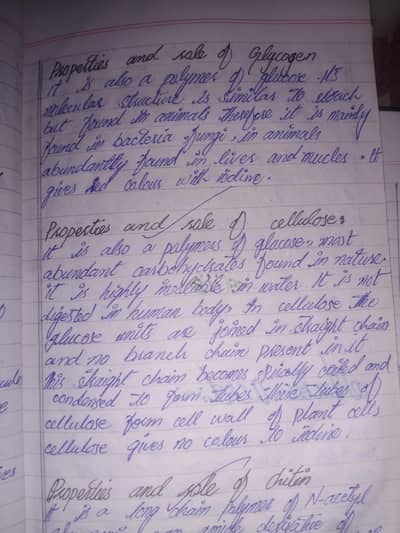 Properties and role of Glycogen
It is also a polymer of glucose. Its
molecular structure is similar to starch
but found in animals therefore it is mainly
found in bacteria fungi, in animals
abundantly found in liver and mucles. It
gives red colour with iodine.
Properties and role of cellulose:
It is also a polymers of glucose, most
abundant carbohydrates found in nature.
it is highly insoluble in water It is not
digested in human body. In cellulose the
glucose units are joined in straight chain
and no branch chain present in it
this straight chain becomes spirally coiled and
condensed to form tubes these tubes of
cellulose form cell wall of plant cells
cellulose gives no colour to iodine.
Properties and role of chitin
It is a long chain polymer of N-acetyl
amino derivative of